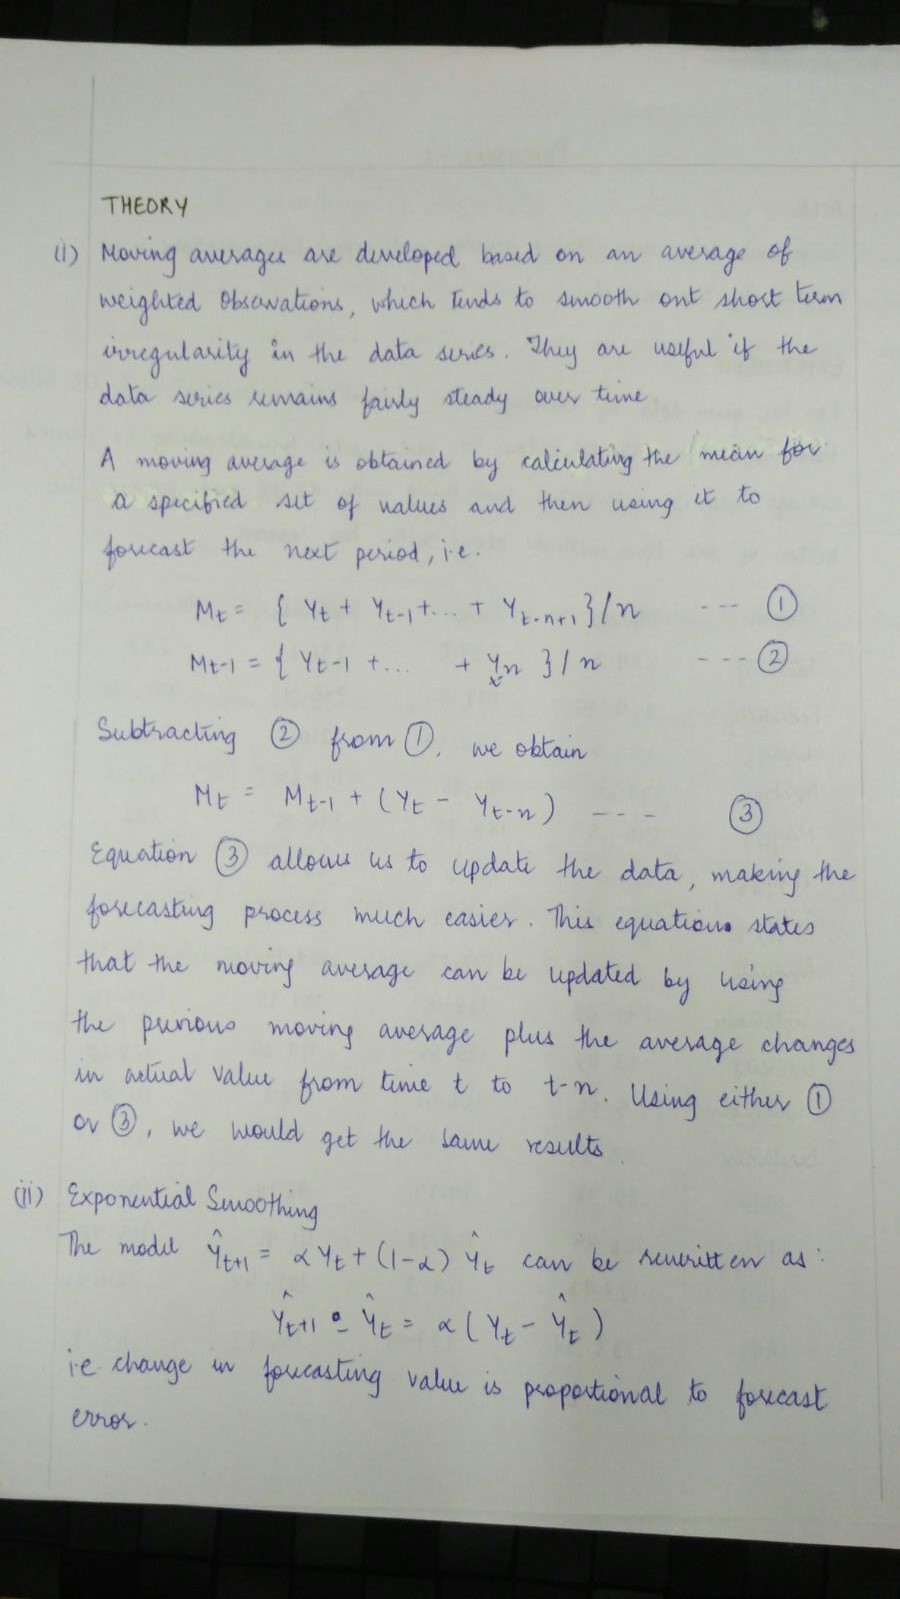 THEORY
(i) Moving averages are developed based on an average of
weighted Observations, which tends to smooth out short term
irregularity in the data series. They are useful if the
data series remains fairly steady over time.
A moving average is obtained by calculating the mean for
a specified set of values and then using it to
forecast the next period, i.e.
Mt = { Yt + Yt-1 +... + Yt-n+1 } / n --- ①
Mt-1 = { Yt-1 + ... + Yn } / n --- ②
Subtracting ② from ①, we obtain
Mt = Mt-1 + (Yt - Yt-n) --- ③
Equation ③ allows us to update the data, making the
forecasting process much easier. This equation states
that the moving average can be updated by using
the previous moving average plus the average changes
in actual value from time t to t-n. Using either ①
or ③, we would get the same results.
(ii) Exponential Smoothing
The model Ŷt+1 = αYt + (1-α) Ŷt can be rewritten as:
Ŷt+1 - Ŷt = α ( Yt - Ŷt )
i.e. change in forecasting value is proportional to forecast
error.